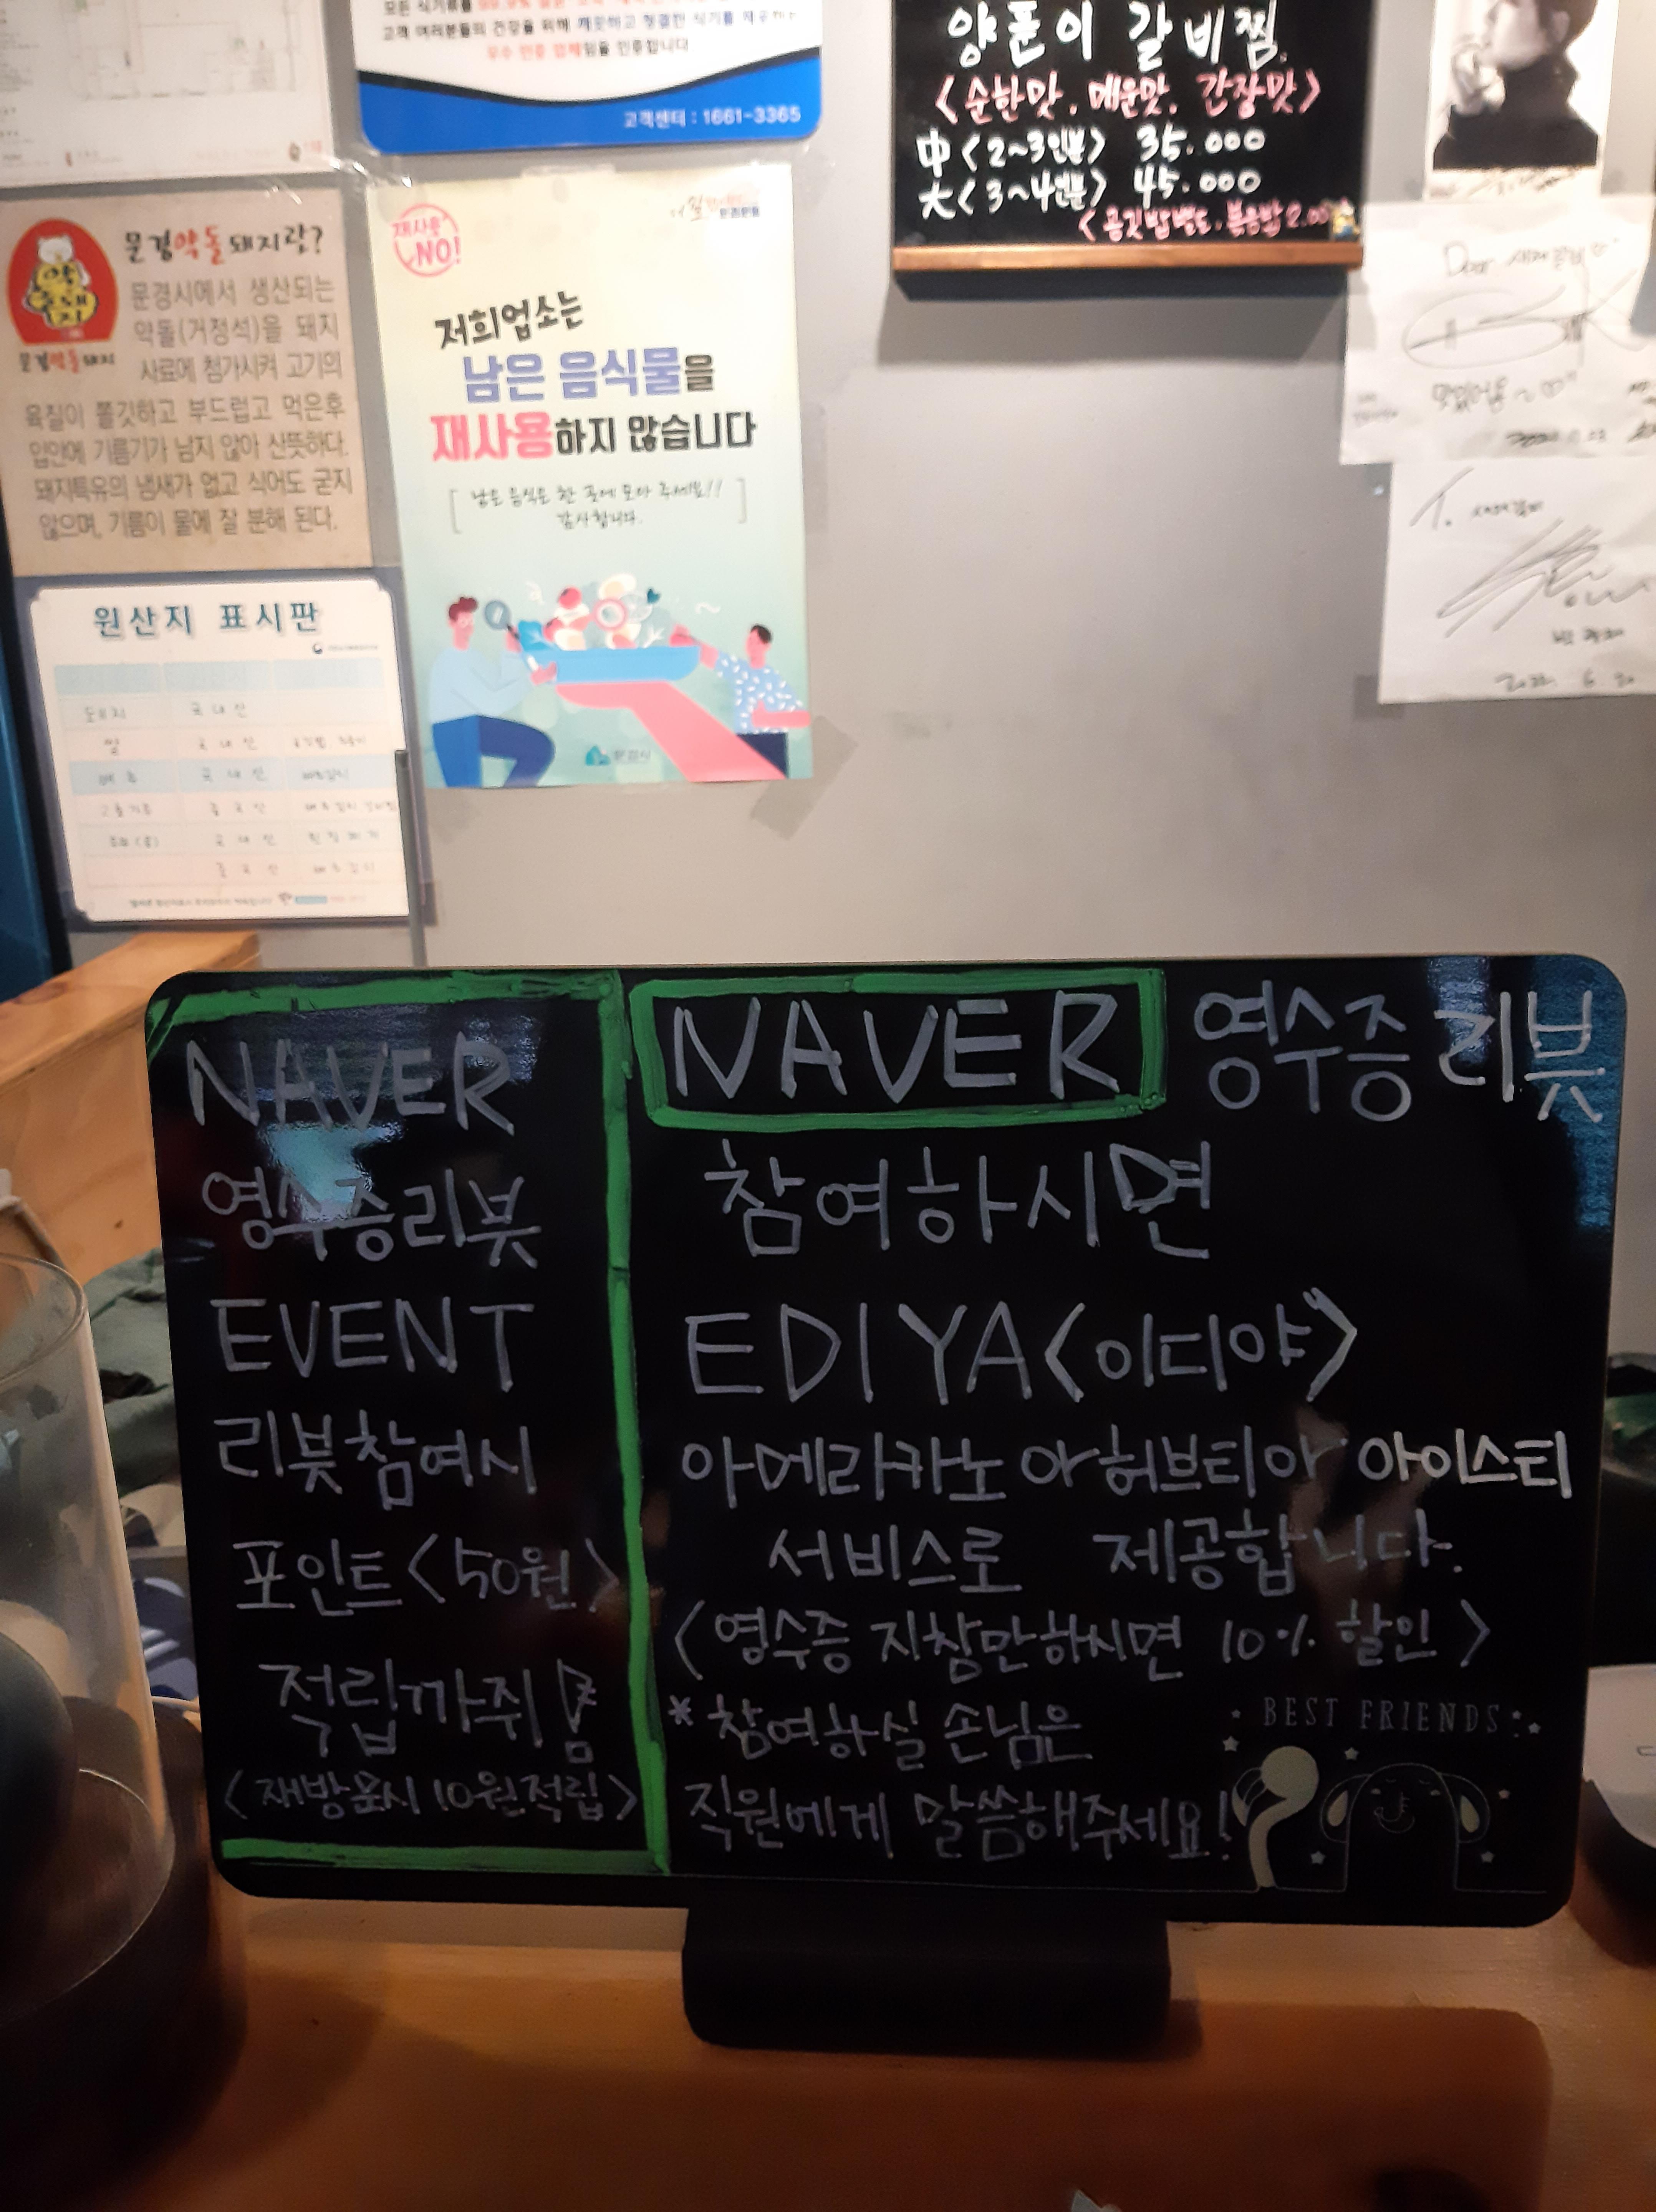 고객 여러분들의 건강을 위해 깨끗하고 청결한 식기를
우수 인증 업체임을 인증합니다
고객센터 : 1661-3365
양푼이 갈비찜
<순한맛, 매운맛, 간장맛>
中<2~3인분> 35.000
大<3~4인분> 45.000
<공깃밥별도, 볶음밥2.00
문경약돌돼지란?
문경시에서 생산되는
약돌(거정석)을 돼지
사료에 첨가시켜 고기의
육질이 쫄깃하고 부드럽고 먹은후
입안에 기름기가 남지 않아 산뜻하다.
돼지특유의 냄새가 없고 식어도 굳지
않으며, 기름이 물에 잘 분해 된다.
문경약돌돼지
재사용
NO!
저희업소는
남은 음식물을
재사용하지 않습니다
[ 남은 음식은 한 곳에 모아 주세요!!
감사합니다. ]
문경시
원산지 표시판
돼지 국내산
쌀 국내산
배추 국내산
고춧가루 중국산
국내산
중국산
Dear
맛있어용~
T. 새재갈비
NAVER
영수증리뷰
EVENT
리뷰참여시
포인트<50원>
적립까쥐!
<재방문시 10원적립>
NAVER 영수증 리뷰
참여하시면
EDIYA<이디야>
아메리카노 or 허브티 or 아이스티
서비스로 제공합니다.
<영수증 지참만하시면 10% 할인>
*참여하실 손님은
직원에게 말씀해주세요!
BEST FRIENDS